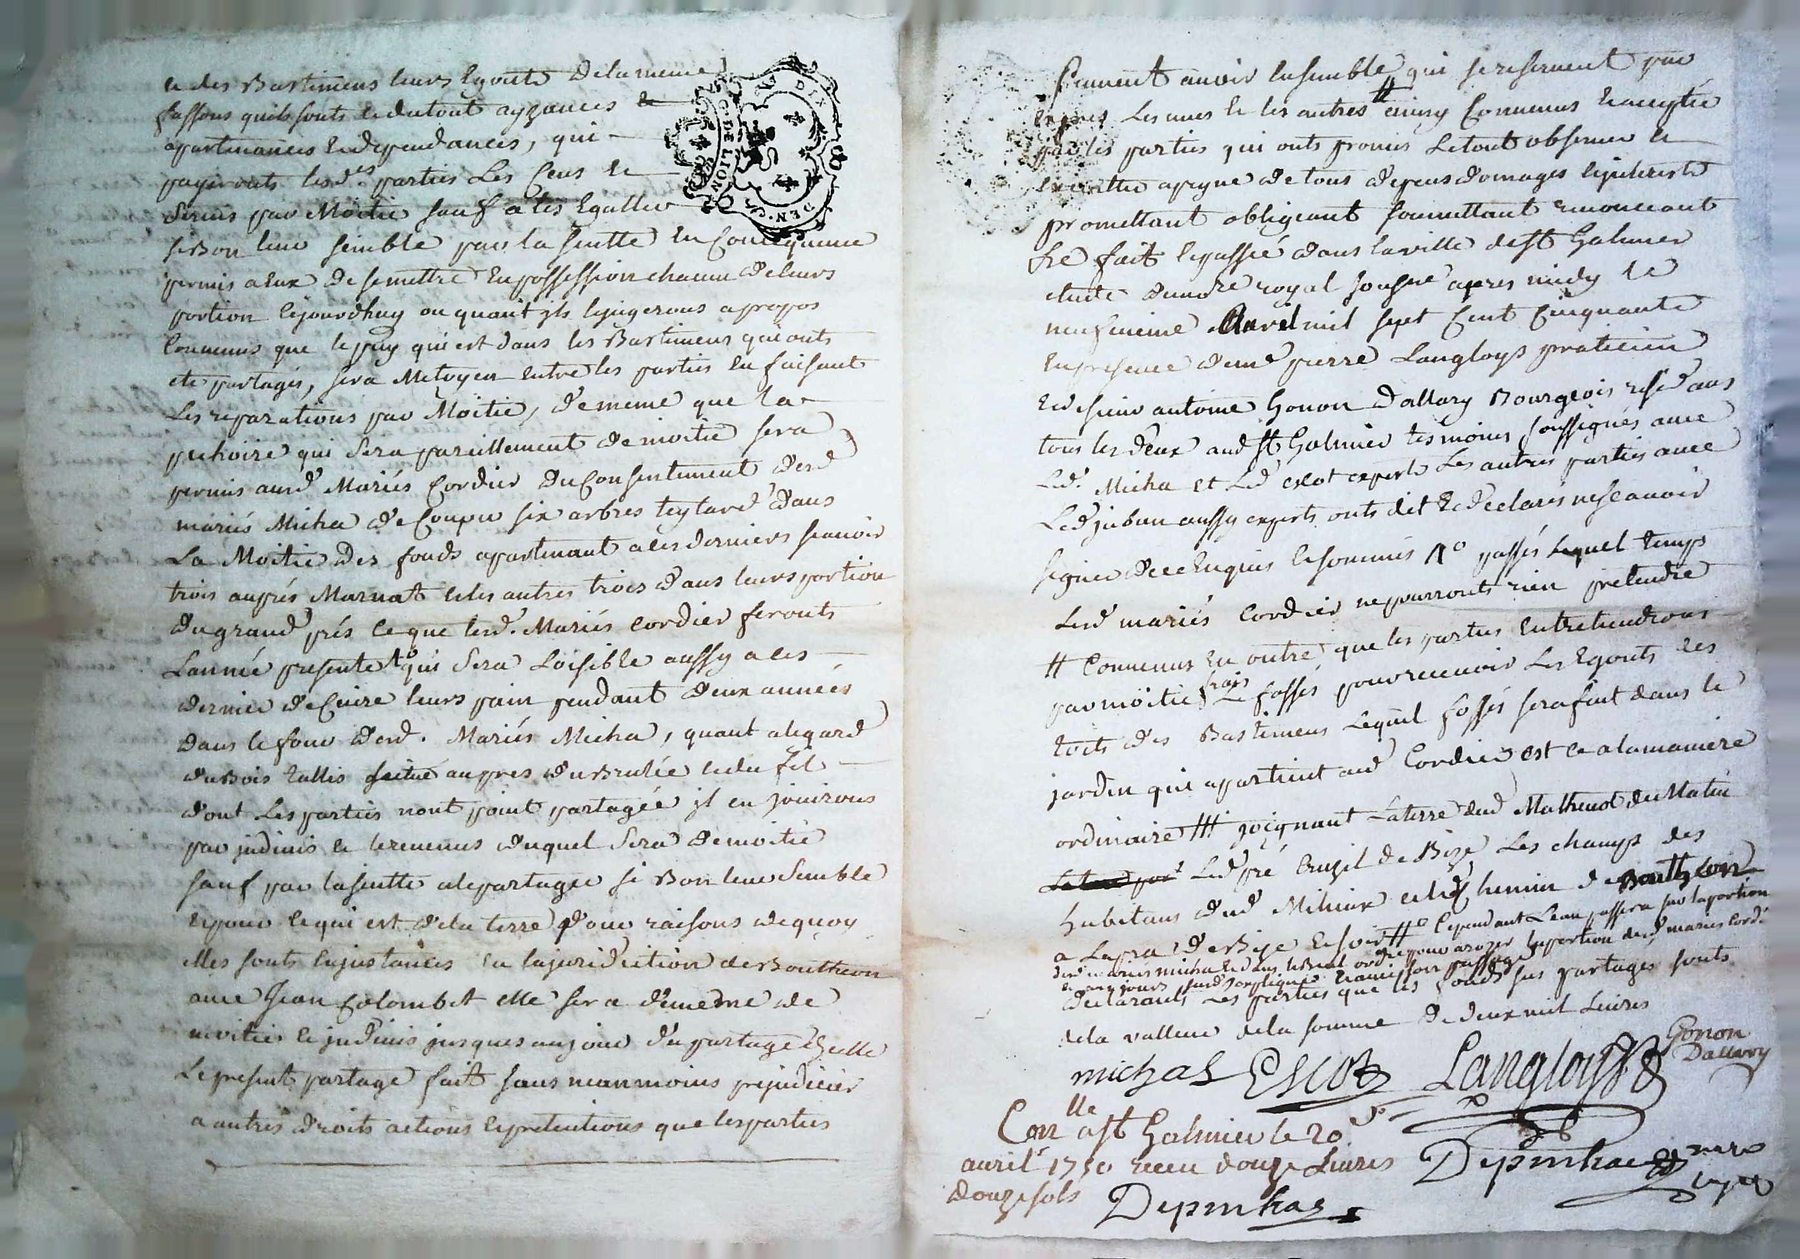 et des Bastimens leurs Egouts De la meme
fassons quils sonts et du tout ayzances et
apartenances et dependances, qui
payeronts lesd.es parties Les Cens et
Servis par Moitié sauf a les Egaller
si Bon leur semble par la suitte En Conséquence
permis a Eux De se mettre En possession chacun de leurs
portion Ejourdhuy ou quant jls lejugerons apropos
Convenus que le puy qui est dans les Bastimens qui onts
eté partagés, sera Mitoyen Entre les parties En faisant
Les reparations par Moitié, de meme que la
pechoire qui Sera pareillement de moitié sera
permis ausd. Mariés Cordier Du Consentement desd.
mariés Micha de Couper six arbres teylard dans
La Moitié Des fonds apartenant a ces derniers scavoir
trois auprés Marnat et les autres trois dans leurs portion
Du grand prés Ce que lesd. Mariés Cordier feronts
Lannée presente qui Sera Loisible aussy a ces
dernier de Cuire leurs pain pendant deux années
dans le four desd. Mariés Micha, quant alegard
du Bois tallis situé aupres du et du
dont Les parties nont point partagée jl en jouirons
par jndivis et le revenus duquel Sera De moitié
sauf par la suitte a le partager si Bon leur Semble
Et pour Ce qui est de la terre pour raisons de quoy
elles sonts En jnstances En la juridiction de Bouthéon
avec Jean Colombet elle sera demême de
moitiés et jndivis jusques au jour du partage d'jcelle
Le present partage fait sans neanmoins préjudicier
a autres droits actions Et pretentions que les parties
peuvent avoir Ensemble qui se reservent par
Exprés Les unes et les autres # ainsy Convenus et accepté
par les parties qui onts promis Le tout observer et
Executter apeyne de tous depens domages Et jnterests
promettant obligeant soumettant renonceant
&c fait Et passé dans la ville de St Galmier
etude du no.re royal sousigné apres midy le
neufvieme Avril mil sept Cent Cinquante
En présence de me pierre Langloys praticien
Et de sieur antoine Gonon Dallary Bourgeois resid.ans
tous les deux aud St Galmier tesmoins soussignés avec
Led. Micha Et Led escot expert Les autres parties avec
Led jaban aussy experts onts dit Et declarés ne scavoir
signer de ce Enquis Et sommés passés Lequel temps
Lesd mariés Cordier ne pourronts rien pretendre
# Convenus En outre que les parties Entretiendrons
par moitié frais Le fossés pour recevoir Les Egouts des
toits des Bastimens Lequel fossés sera fait dans le
jardin qui apartient aud Cordier Est Ce a la maniere
ordinaire ### joignant La terre dud Mathevot du Matin
Led pré de Bise Les champs des
habitans dud Et le chemin de Bouthéon
a de Bise Et soir Cependant Leau passera sur la portion
desd mariés micha pour arozer la portion desd mariés Cord.r
declarants Les parties que les fonds sus partages sonts
de la valleur de la somme De deux mil Livres
michal Escot Langloys Gonon
Dallary
Con.lle a St Galmier le 20
avril 1750 receu douze Livres
douze sols